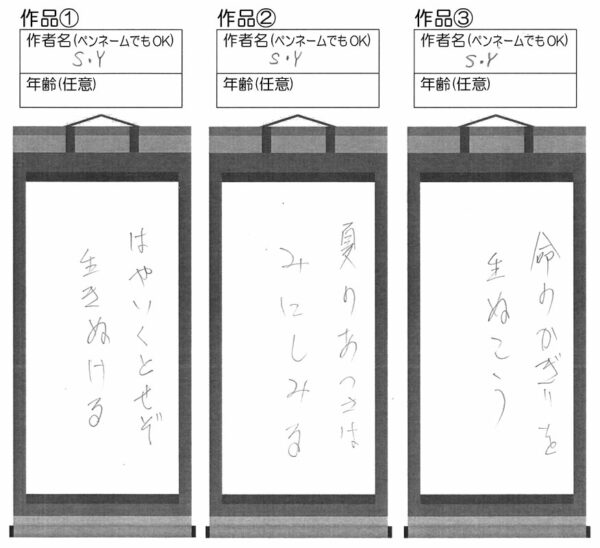 作品①
作者名(ペンネームでもOK)
S・Y
年齢(任意)
はやいくとせぞ
生きぬける
作品②
作者名(ペンネームでもOK)
S・Y
年齢(任意)
夏のあつさは
みにしみる
作品③
作者名(ペンネームでもOK)
S・Y
年齢(任意)
命のかぎりを
生ぬこう